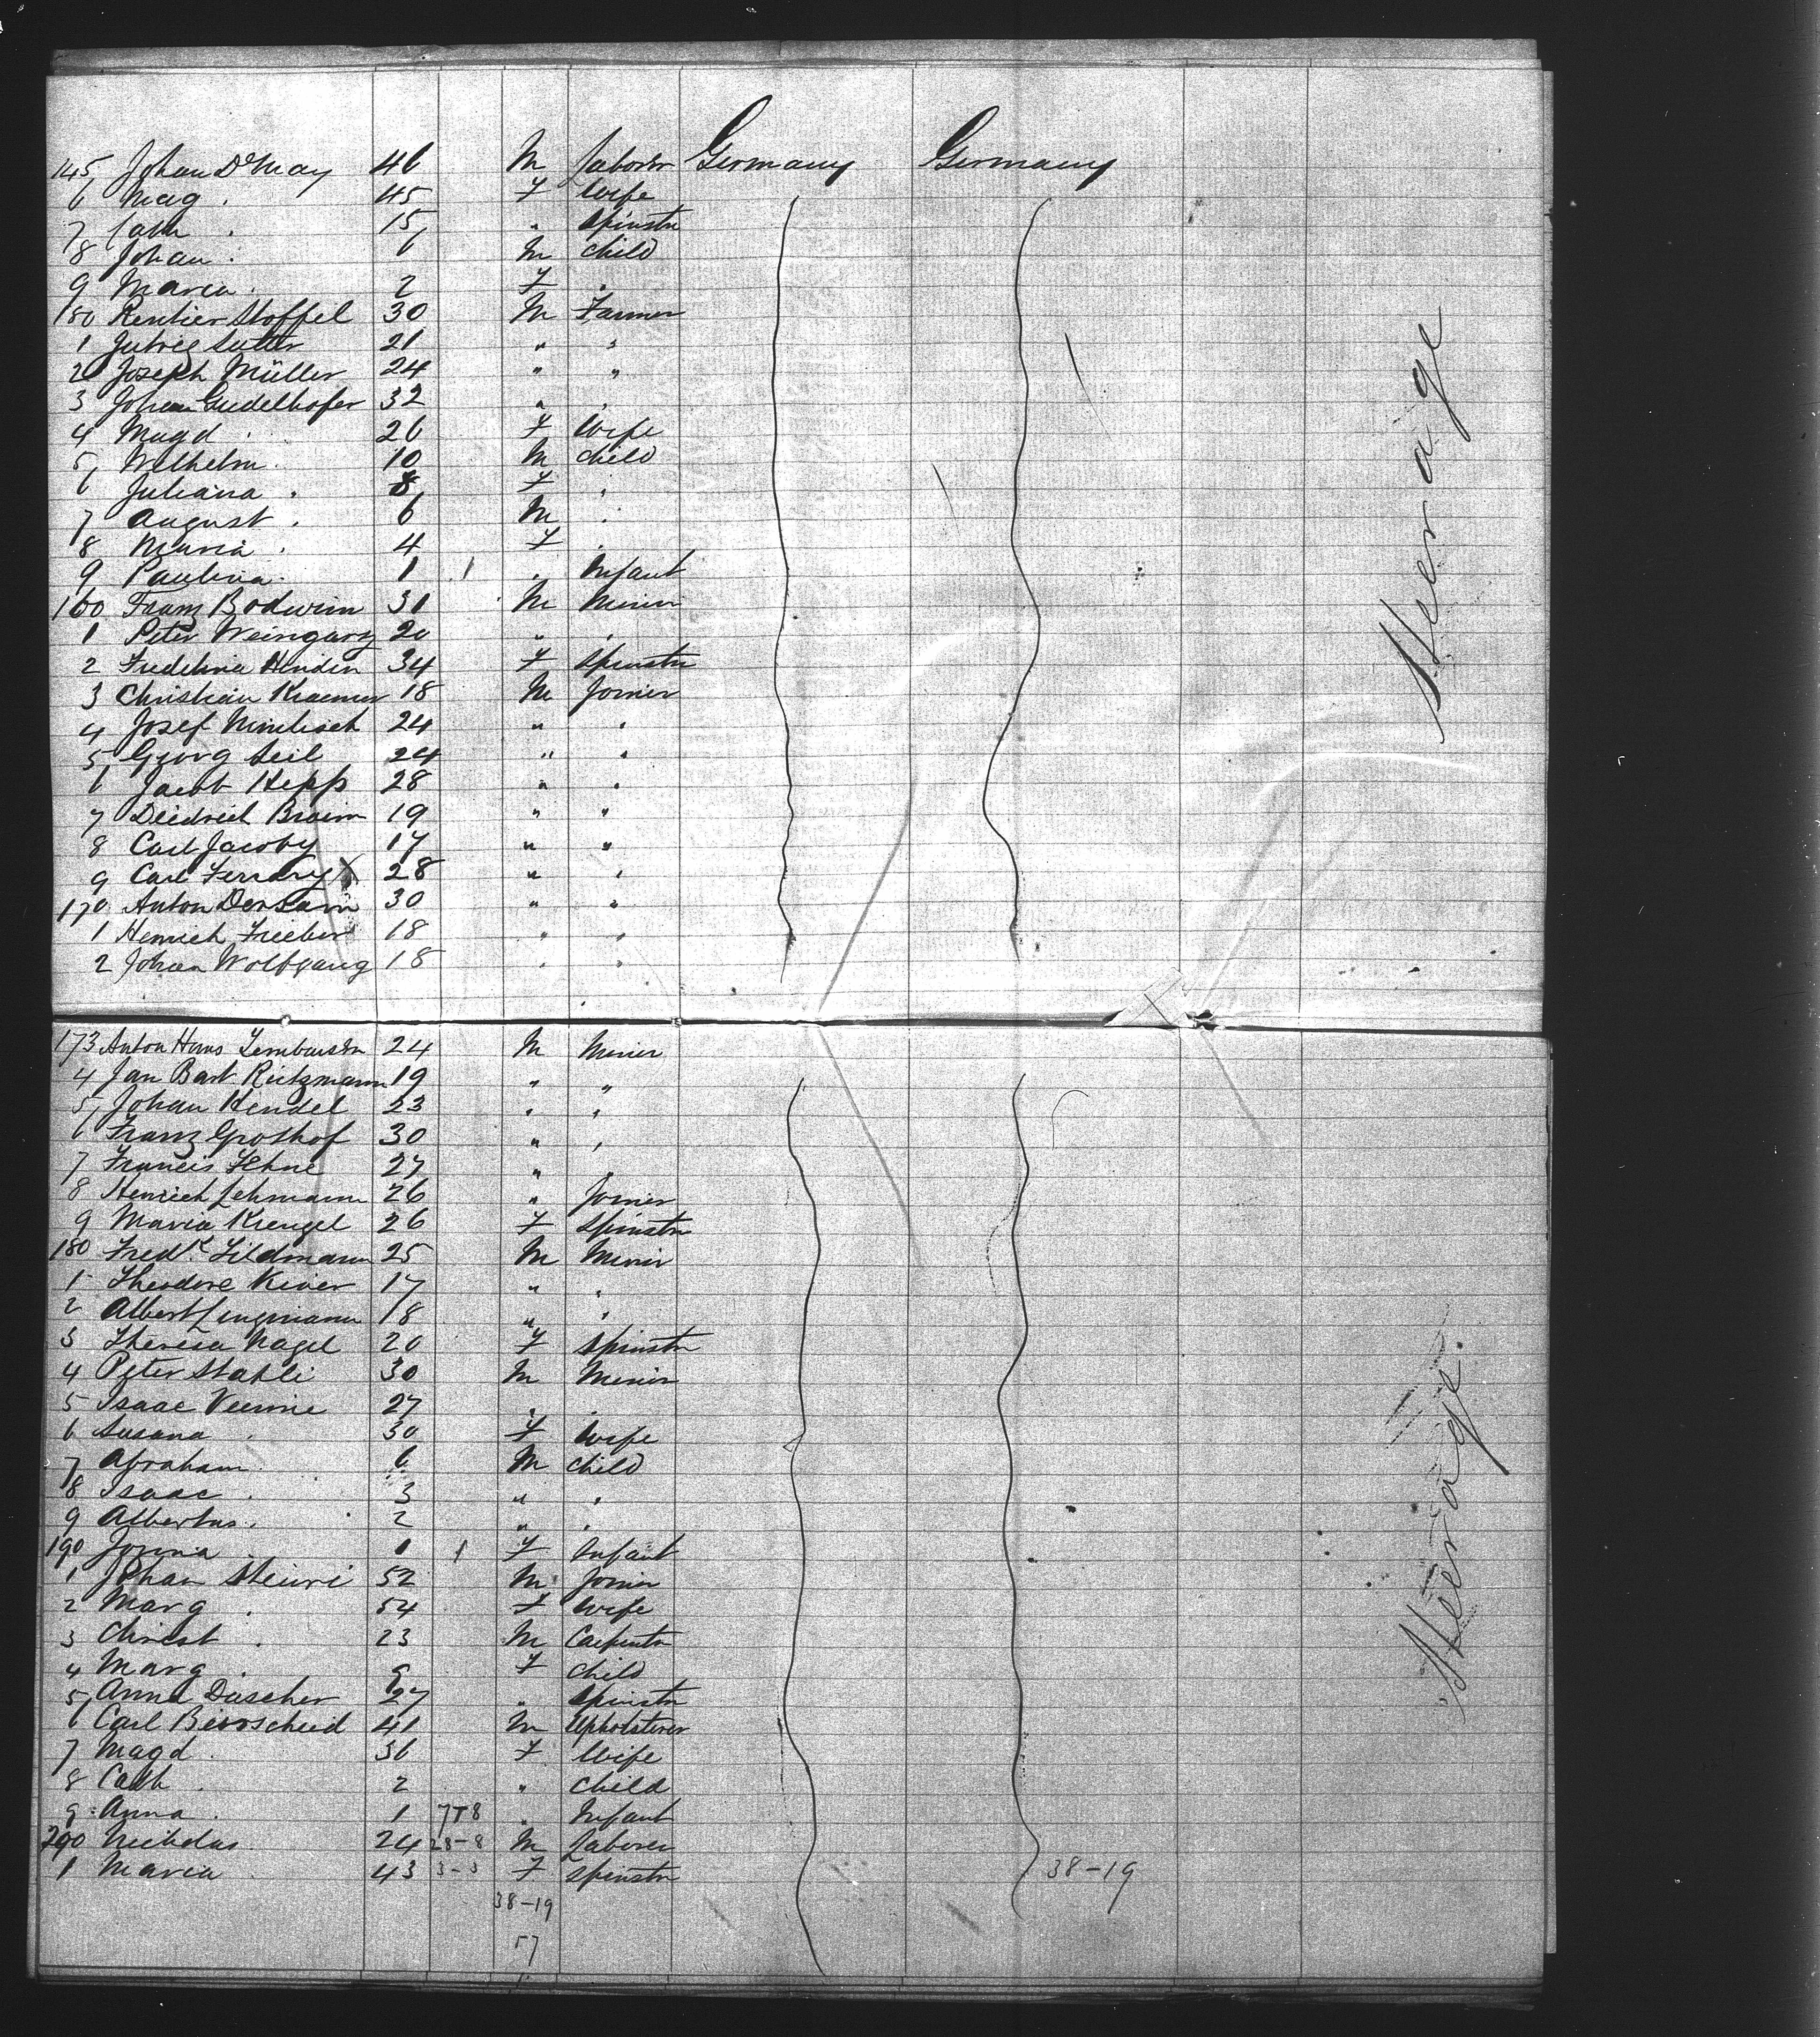 145 Johan DeMay 46 M Laborer Germany Germany
6 Mag . 45 F Wife
7 Cath . 15 " Spinstr
8 Johan . 6 M Child
9 Maria . 2 F "
150 Stoffel 30 M Farmer
1 21 " "
2 Joseph Müller 24 " "
3 Johan Gudelhofer 32 " "
4 Magd . 26 F Wife
5 Wilhelm . 10 M Child
6 Juliana . 8 F "
7 August . 6 M "
8 Maria . 4 F "
9 Paulina . 1 1 " Infant
160 Franz Bodwin 31 M Miner
1 Peter Weingarz 20 " "
2 34 F Spinstr
3 Christian Kraemer 18 M Joiner
4 Josef 24 " "
5 Georg Seil 24 " "
6 Jacob Hepp 28 " "
7 Diedrich 19 " "
8 Carl Jacoby 17 " "
9 Carl Ferrary X 28 " "
170 Anton 30 " "
1 Henrich 18 " "
2 Johan Wolfgang 18 " "
Steerage
173 Anton Hans 24 M Miner
4 Jan Bart Ritzmann 19 " "
5 Johan Hendel 23 " "
6 Franz Grothof 30 " "
7 Francis 27 " "
8 Henrich Lehmann 26 " Joiner
9 Maria Krengel 26 F Spinstr
180 Fredk. Fildmann 25 M Miner
1 Theodore 17 " "
2 Albert 18 " "
3 Theresa Nagel 20 F Spinstr
4 Peter Stahli 30 M Miner
5 Isaac 27 " "
6 Susana . 30 F Wife
7 Abraham . 6 M Child
8 Isaac . 3 " "
9 Albertus . 2 " "
190 1 1 F Infant
1 Johan 52 M Joiner
2 Marg . 54 F Wife
3 Christ . 23 M Carpentr
4 Marg . 9 F Child
5 Anna Duscher 27 " Spinstr
6 Carl 41 M Upholsterer
7 Magd . 36 F Wife
8 Cath . 2 " Child
9 Anna . 1 7T8 " Infant
200 Nicholas . 24 28-8 M Laborer
1 Maria . 43 3-3 F Spinstr 38-19
38-19
57
Steerage.